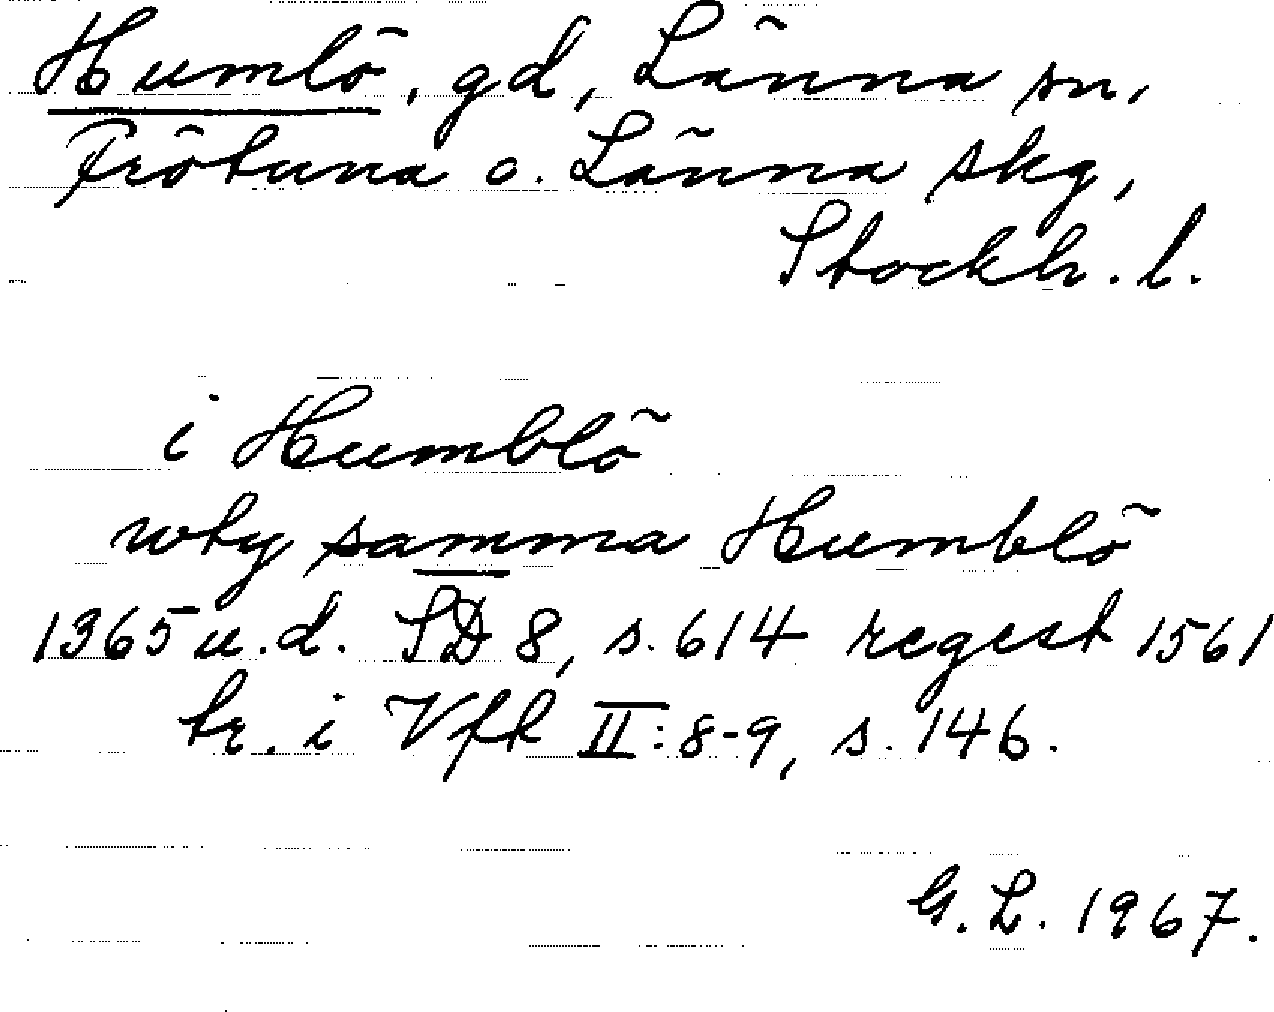 Humlö, gd, Länna sn,
Frötuna o. Länna skg,
Stockh. l.
i Humblö
wty samma Humblö
1365 u.d. SD 8, s. 614 regest 1561
tr. i Vfk II:8-9, s. 146.
G. L. 1967.